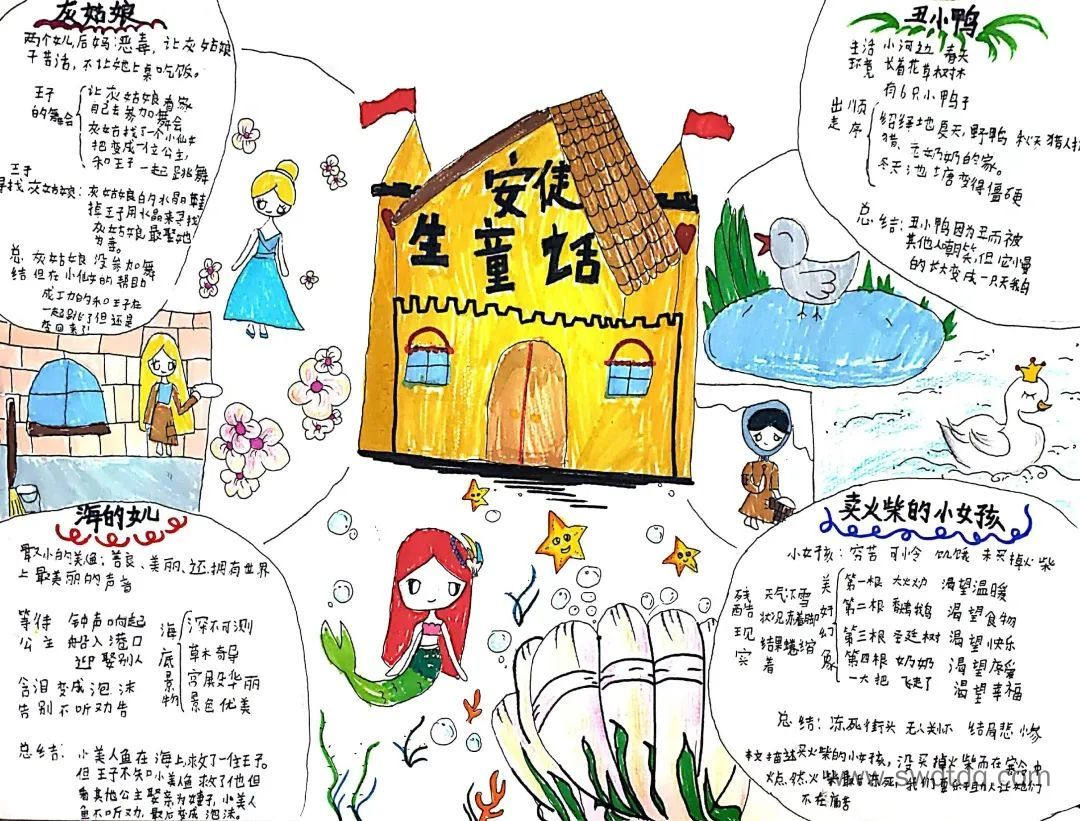 安徒
生童话
灰姑娘
两个女儿后妈:恶毒,让灰姑娘
干苦活,不让她上桌吃饭。
王子
的舞会
让灰姑娘看家
自己去参加舞会
灰姑找了一个小仙女
把变成一位公主,
和王子一起跳舞
王子
寻找灰姑娘:灰姑娘的水晶鞋
掉王子用水晶来寻找
灰姑娘最娶她
为妻。
总 灰姑娘没参加舞
结 但在小仙女的帮助
成功的和王子在
一起
但还是
丑小鸭
生活 小河边 春天
环境 长着花草树林
有6只小鸭子
出走
顺序
绍绎地夏天,野鸭 秋天 猎人
猎、去奶奶的家。
冬天:池塘变得僵硬
总结:丑小鸭因为丑而被
其他人嘲笑,但它慢慢
的长大变成一只天鹅
海的女儿
最小的美鱼:善良、美丽、还拥有世界
上最美丽的声音
等待 钟声响起
公主 船入港口
迎娶别人
含泪 变成泡沫
告别 不听劝告
海底景物
深不可测
草木奇异
宫殿华丽
景色优美
总结:小美人鱼在海上救了一位王子。
但王子不知小美鱼救了他但
看其他公主娶亲为妻子,小美人
鱼不听劝,最后变成泡沫。
卖火柴的小女孩
小女孩:穷苦 可怜 饥饿 未卖掉火柴
残酷现实
天气:下雪
状况:赤着脚
结果:蜷缩
着
美好幻象
第一根 大火炉 渴望温暖
第二根 香喷鹅 渴望食物
第三根 圣诞树 渴望快乐
第四根 奶奶 渴望疼爱
一大把 飞走了 渴望幸福
总结:冻死街头 无人关怀 结局悲惨
本文描述卖火柴的小女孩,没买掉火柴而在寒冷中
点燃火柴最后冻死,我们要乐
人让她们
不在痛苦
www.swdtdq.com